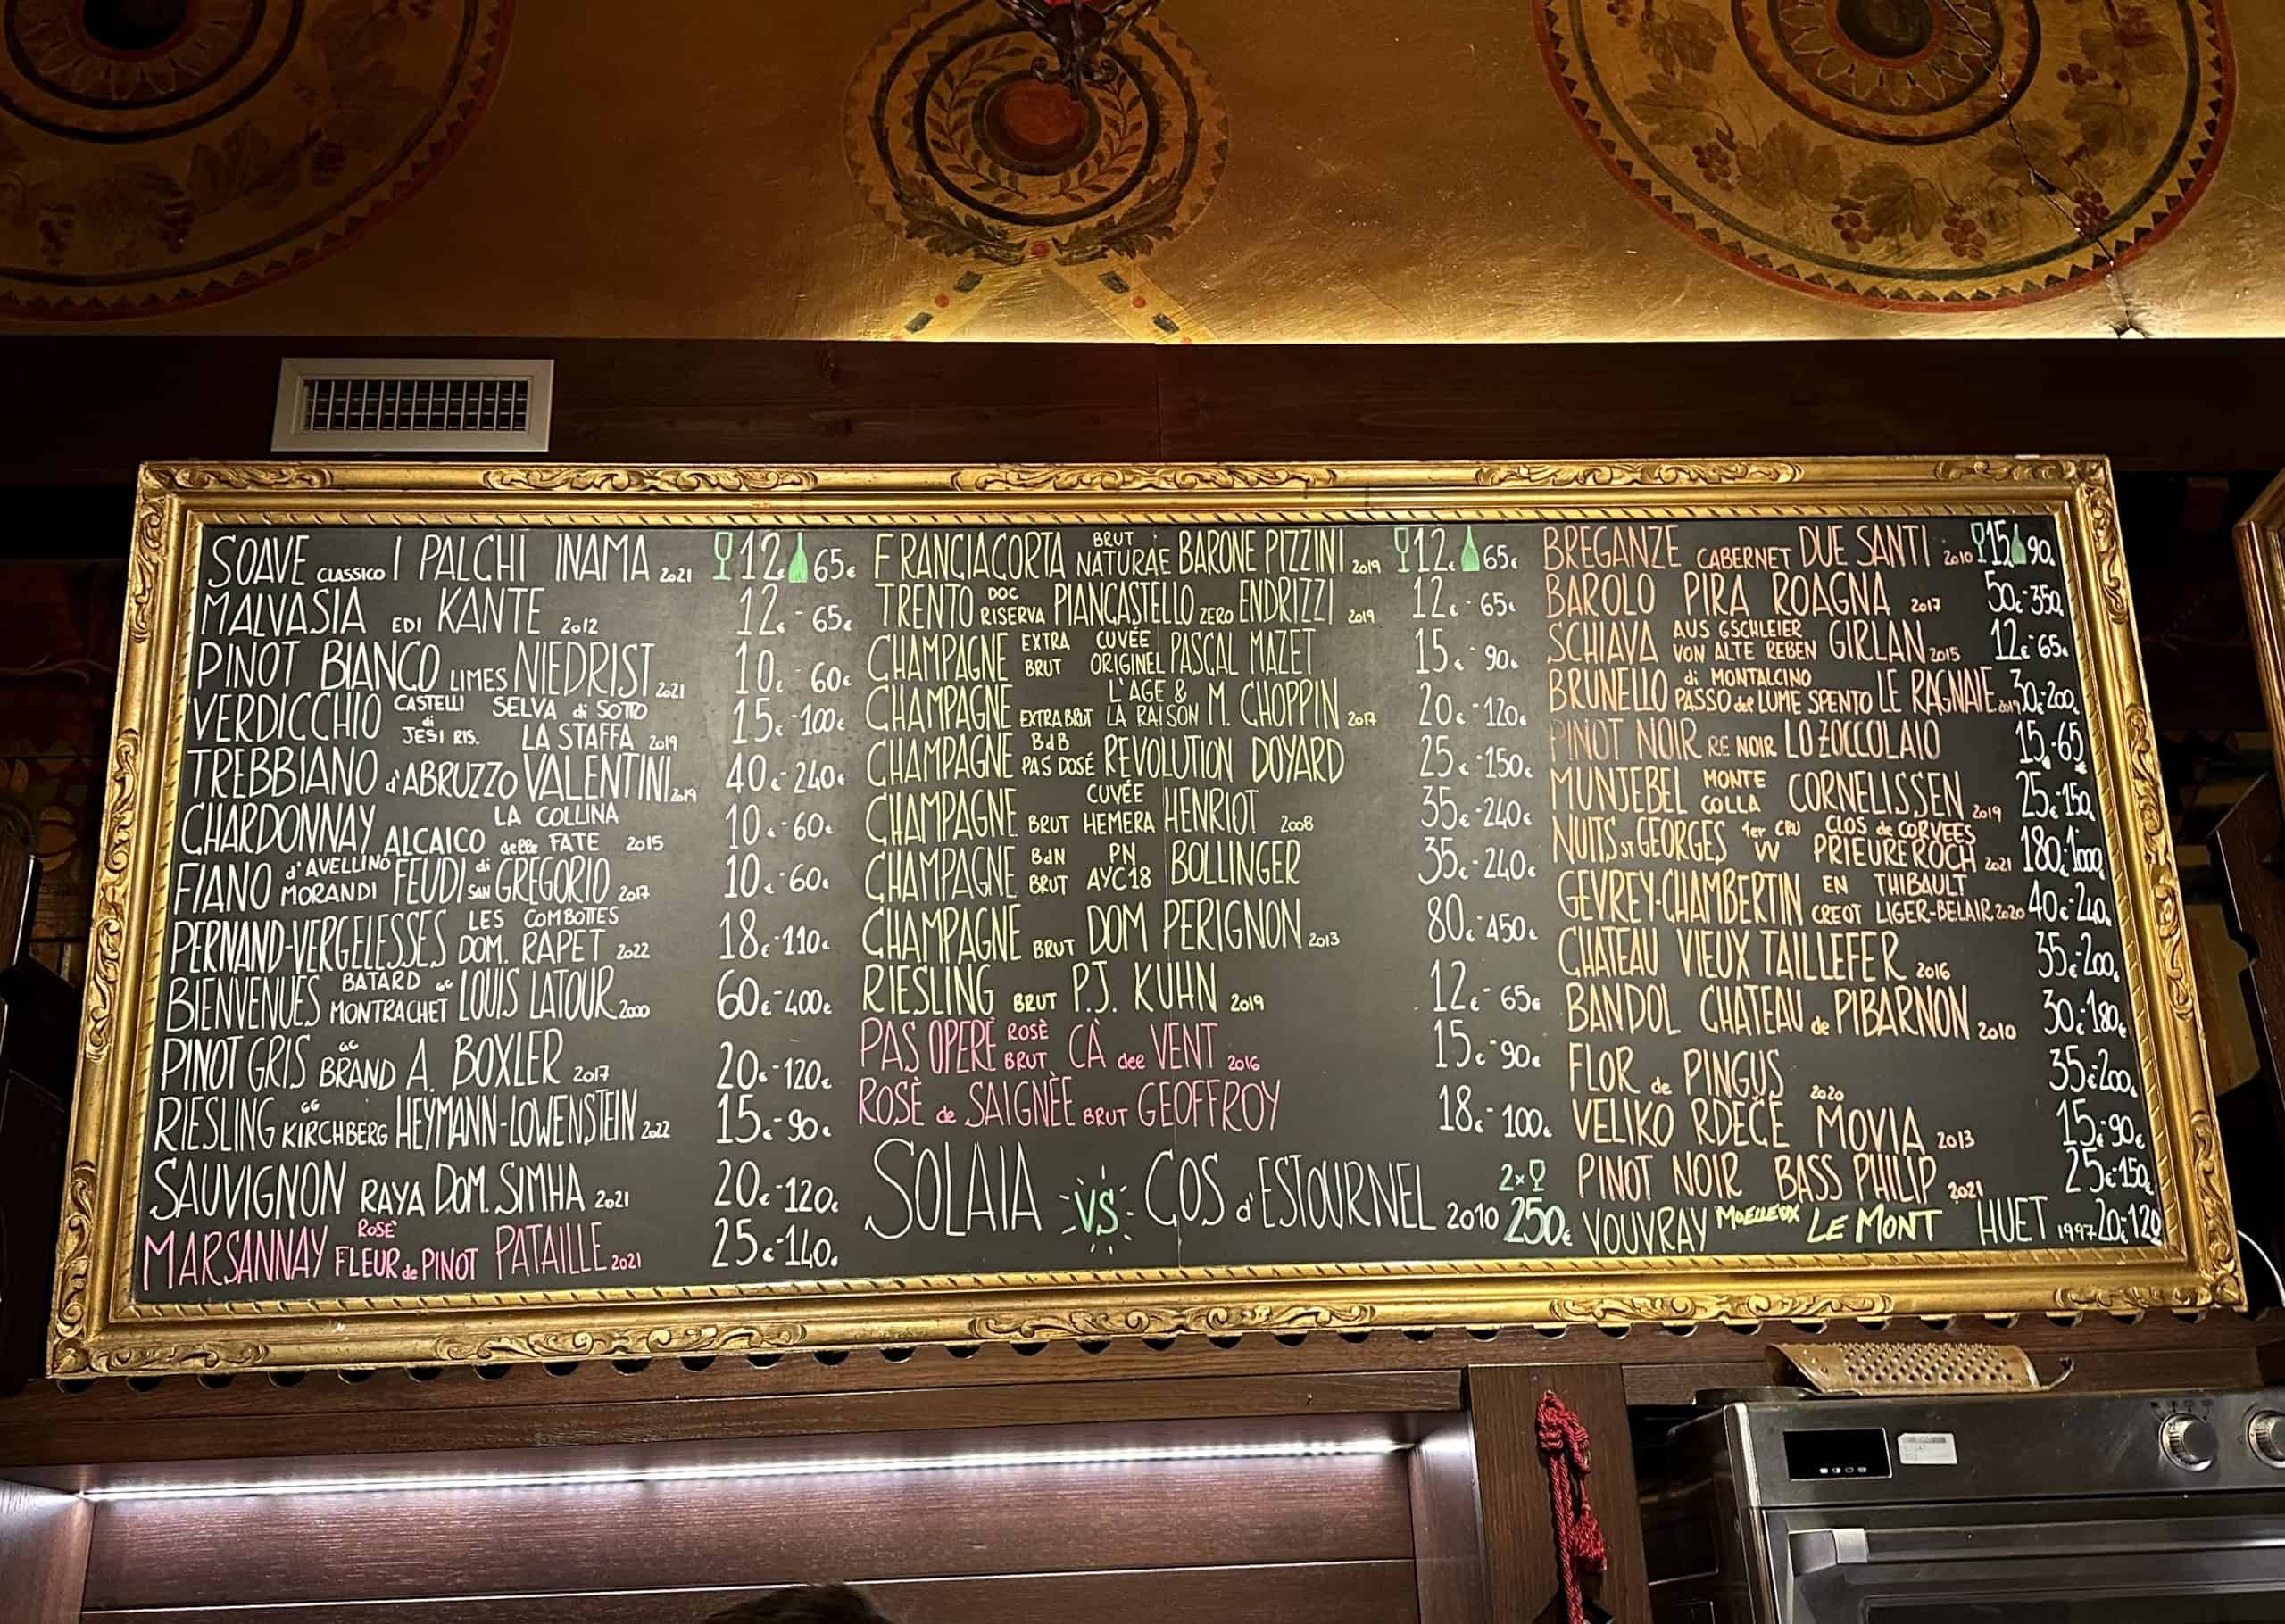 SOAVE CLASSICO I PALCHI INAMA 2021 12€ 65€
MALVASIA EDI KANTE 2012 12€ - 65€
PINOT BIANCO LIMES NIEDRIST 2021 10€ - 60€
VERDICCHIO CASTELLI di JESI RIS. SELVA di SOTTO LA STAFFA 2019 15€ - 100€
TREBBIANO d'ABRUZZO VALENTINI 2019 40€ - 240€
CHARDONNAY LA COLLINA ALCAICO delle FATE 2015 10€ - 60€
FIANO d'AVELLINO MORANDI FEUDI di SAN GREGORIO 2017 10€ - 60€
PERNAND-VERGELESSES LES COMBOTTES DOM. RAPET 2022 18€ - 110€
BIENVENUES BATARD GC MONTRACHET LOUIS LATOUR 2000 60€ - 400€
PINOT GRIS GC BRAND A. BOXLER 2017 20€ - 120€
RIESLING GG KIRCHBERG HEYMANN-LOWENSTEIN 2022 15€ - 90€
SAUVIGNON RAYA DOM. SIMHA 2021 20€ - 120€
MARSANNAY ROSÈ FLEUR de PINOT PATAILLE 2021 25€ - 140€
FRANCIACORTA BRUT NATURAE BARONE PIZZINI 2019 12€ 65€
TRENTO DOC RISERVA PIANCASTELLO ZERO ENDRIZZI 2019 12€ - 65€
CHAMPAGNE EXTRA BRUT CUVÉE ORIGINEL PASCAL MAZET 15€ - 90€
CHAMPAGNE EXTRA BRUT L'AGE & LA RAISON M. CHOPPIN 2017 20€ - 120€
CHAMPAGNE BdB PAS DOSÉ REVOLUTION DOYARD 25€ - 150€
CHAMPAGNE BRUT CUVÉE HEMERA HENRIOT 2008 35€ - 240€
CHAMPAGNE BdN BRUT PN AYC18 BOLLINGER 35€ - 240€
CHAMPAGNE BRUT DOM PERIGNON 2013 80€ - 450€
RIESLING BRUT P.J. KUHN 2019 12€ - 65€
PAS OPERÈ ROSÈ BRUT CÀ dee VENT 2016 15€ - 90€
ROSÈ de SAIGNÈE BRUT GEOFFROY 18€ - 100€
SOLAIA VS COS d'ESTOURNEL 2010 2x 250€
BREGANZE CABERNET DUE SANTI 2010 15 90€
BAROLO PIRA ROAGNA 2017 50€ - 350€
SCHIAVA AUS GSCHLEIER VON ALTE REBEN GIRLAN 2015 12€ - 65€
BRUNELLO di MONTALCINO PASSO del LUME SPENTO LE RAGNAIE 2019 30€ - 200€
PINOT NOIR RE NOIR LO ZOCCOLAIO 15€ - 65€
MUNJEBEL MONTE COLLA CORNELISSEN 2019 25€ - 150€
NUITS ST GEORGES 1er CRU VV CLOS de CORVEES PRIEURE ROCH 2021 180€ - 1000€
GEVREY-CHAMBERTIN EN CREOT THIBAULT LIGER-BELAIR 2020 40€ - 240€
CHATEAU VIEUX TAILLEFER 2016 35€ - 200€
BANDOL CHATEAU de PIBARNON 2010 30€ - 180€
FLOR de PINGUS 2020 35€ - 200€
VELIKO RDEČE MOVIA 2013 15€ - 90€
PINOT NOIR BASS PHILIP 2021 25€ - 150€
VOUVRAY MOELLEUX LE MONT HUET 1997 20€ - 120